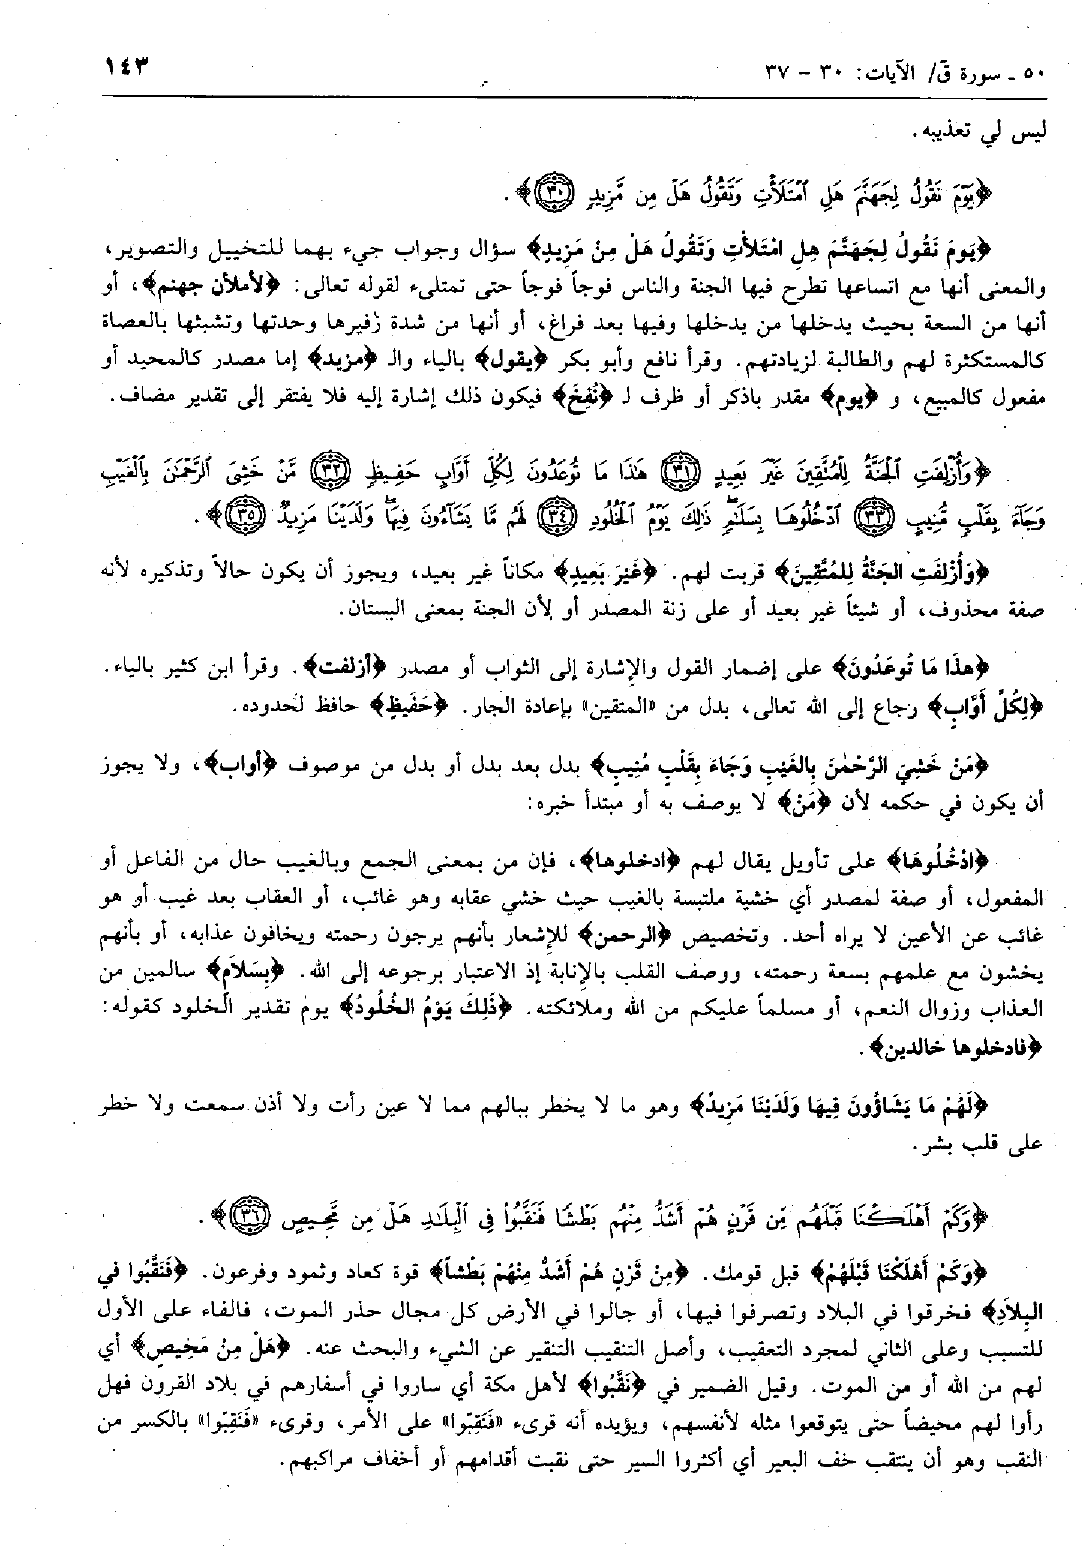 ٥٠ ـ سورة ق/ الآيات: ٣٠ – ٣٧
١٤٣
ليس لي تعذيبه.
﴿يَوْمَ نَقُولُ لِجَهَنَّمَ هَلِ ٱمْتَلَأْتِ وَتَقُولُ هَلْ مِن مَّزِيدٍ ﴿٣٠﴾﴾.
﴿يَوم نَقُولُ لِجَهَنَّمَ هِلِ امْتَلأتِ وَتَقُولُ هَلْ مِنْ مَزِيدٍ﴾ سؤال وجواب جيء بهما للتخييل والتصوير،
والمعنى أنها مع اتساعها تطرح فيها الجنة والناس فوجاً فوجاً حتى تمتلىء لقوله تعالى: ﴿لأملأن جهنم﴾، أو
أنها من السعة بحيث يدخلها من يدخلها وفيها بعد فراغ، أو أنها من شدة زفيرها وحدتها وتشبثها بالعصاة
كالمستكثرة لهم والطالبة لزيادتهم. وقرأ نافع وأبو بكر ﴿يقول﴾ بالياء والـ ﴿مزيد﴾ إما مصدر كالمحيد أو
مفعول كالمبيع، و ﴿يوم﴾ مقدر باذكر أو ظرف لـ ﴿نُفِخَ﴾ فيكون ذلك إشارة إليه فلا يفتقر إلى تقدير مضاف.
﴿وَأُزْلِفَتِ ٱلْجَنَّةُ لِلْمُتَّقِينَ غَيْرَ بَعِيدٍ ﴿٣١﴾ هَٰذَا مَا تُوعَدُونَ لِكُلِّ أَوَّابٍ حَفِيظٍ ﴿٣٢﴾ مَّنْ خَشِىَ ٱلرَّحْمَٰنَ بِٱلْغَيْبِ
وَجَآءَ بِقَلْبٍ مُّنِيبٍ ﴿٣٣﴾ ٱدْخُلُوهَا بِسَلَٰمٍ ذَٰلِكَ يَوْمُ ٱلْخُلُودِ ﴿٣٤﴾ لَهُم مَّا يَشَآءُونَ فِيهَا وَلَدَيْنَا مَزِيدٌ ﴿٣٥﴾﴾.
﴿وَأُزْلِفَتِ الجَنَّةُ لِلمُتَّقِينَ﴾ قربت لهم. ﴿غَيْرَ بَعِيدٍ﴾ مكاناً غير بعيد، ويجوز أن يكون حالاً وتذكيره لأنه
صفة محذوف، أو شيئاً غير بعيد أو على زنة المصدر أو لأن الجنة بمعنى البستان.
﴿هذَا مَا تُوعَدُونَ﴾ على إضمار القول والإشارة إلى الثواب أو مصدر ﴿أزلفت﴾. وقرأ ابن كثير بالياء.
﴿لِكُلِّ أَوَّابٍ﴾ رجاع إلى الله تعالى، بدل من «المتقين» بإعادة الجار. ﴿حَفِيظٍ﴾ حافظ لحدوده.
﴿مَن خَشِيَ الرَّحْمٰنَ بِالغَيْبِ وَجَاءَ بِقَلْبٍ مُنِيبٍ﴾ بدل بعد بدل أو بدل من موصوف ﴿أواب﴾، ولا يجوز
أن يكون في حكمه لأن ﴿مَنْ﴾ لا يوصف به أو مبتدأ خبره:
﴿ادْخُلُوهَا﴾ على تأويل يقال لهم ﴿ادخلوها﴾، فإن من بمعنى الجمع وبالغيب حال من الفاعل أو
المفعول، أو صفة لمصدر أي خشية ملتبسة بالغيب حيث خشي عقابه وهو غائب، أو العقاب بعد غيب أو هو
غائب عن الأعين لا يراه أحد. وتخصيص ﴿الرحمن﴾ للإشعار بأنهم يرجون رحمته ويخافون عذابه، أو بأنهم
يخشون مع علمهم بسعة رحمته، ووصف القلب بالإنابة إذ الاعتبار برجوعه إلى الله. ﴿بِسَلاَمٍ﴾ سالمين من
العذاب وزوال النعم، أو مسلماً عليكم من الله وملائكته. ﴿ذَلِكَ يَوْمُ الخُلُودُ﴾ يوم تقدير الخلود كقوله:
﴿فادخلوها خالدين﴾.
﴿لَهُمْ مَا يَشَاؤُونَ فِيهَا وَلَدَيْنَا مَزِيدٌ﴾ وهو ما لا يخطر ببالهم مما لا عين رأت ولا أذن سمعت ولا خطر
على قلب بشر.
﴿وَكَمْ أَهْلَكْنَا قَبْلَهُم مِّن قَرْنٍ هُمْ أَشَدُّ مِنْهُم بَطْشًا فَنَقَّبُوا۟ فِى ٱلْبِلَٰدِ هَلْ مِن مَّحِيصٍ ﴿٣٦﴾﴾.
﴿وَكَمْ أَهْلَكْنَا قَبْلَهُمْ﴾ قبل قومك. ﴿مِنْ قَرْنٍ هُم أَشَدُّ مِنْهُمْ بَطْشاً﴾ قوة كعاد وثمود وفرعون. ﴿فَنَقَّبُوا في
البِلاَدِ﴾ فخرقوا في البلاد وتصرفوا فيها، أو جالوا في الأرض كل مجال حذر الموت، فالفاء على الأول
للتسبب وعلى الثاني لمجرد التعقيب، وأصل التنقيب التنقير عن الشيء والبحث عنه. ﴿هَلْ مِنْ مَحِيصٍ﴾ أي
لهم من الله أو من الموت. وقيل الضمير في ﴿نَقَّبُوا﴾ لأهل مكة أي ساروا في أسفارهم في بلاد القرون فهل
رأوا لهم محيصاً حتى يتوقعوا مثله لأنفسهم، ويؤيده أنه قرىء «فَنَقِبُوا» على الأمر، وقرىء «فَنَقِبُوا» بالكسر من
النقب وهو أن ينتقب خف البعير أي أكثروا السير حتى نقبت أقدامهم أو أخفاف مراكبهم.